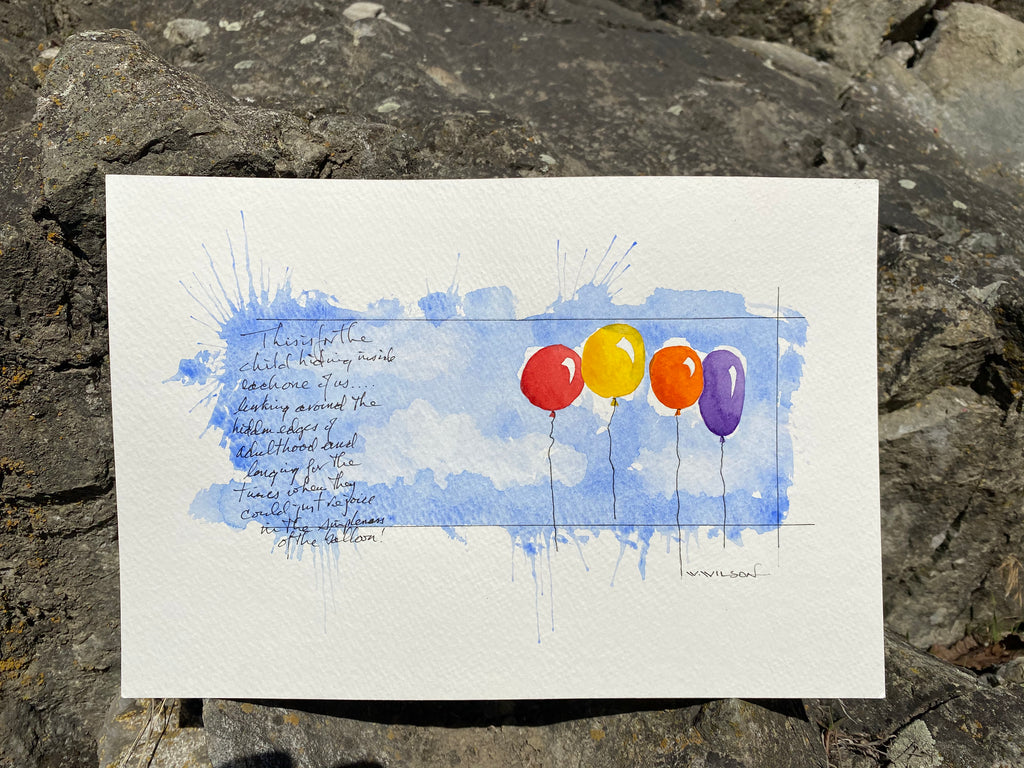 This is for the
child hiding inside
each one of us....
lurking around the
hidden edges of
adulthood and
longing for the
times when they
could just rejoice
in the simpleness
of the balloon!
W. WILSON